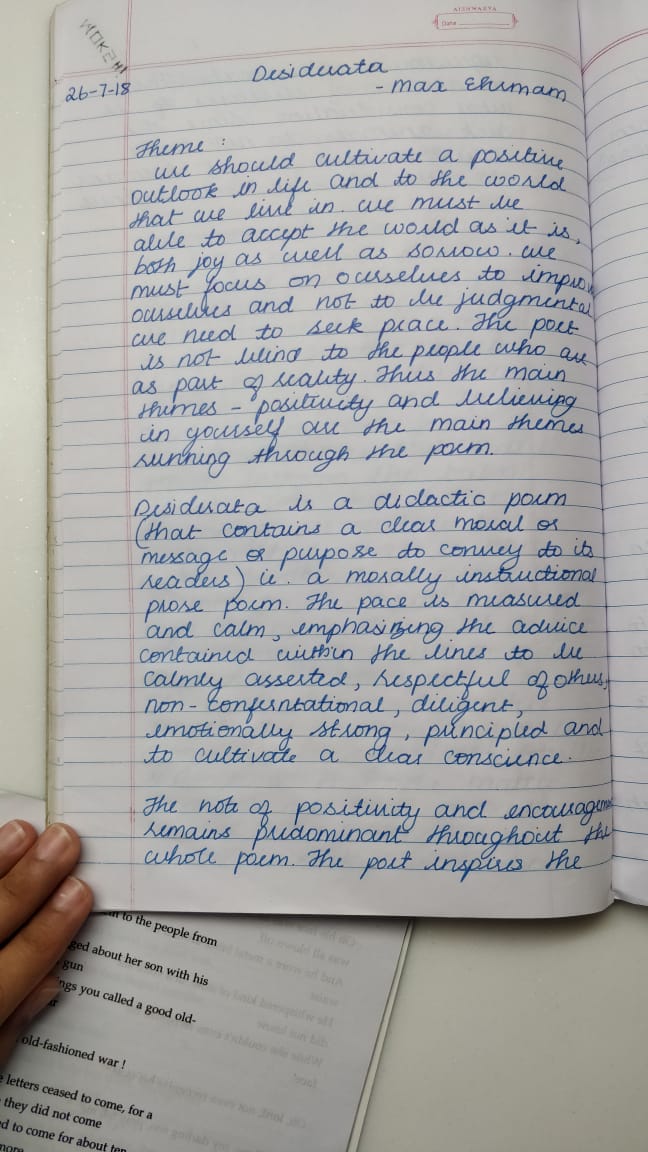 AISHWARYA
Date
MOKSH!
26-7-18
Desiderata
- Max Ehrmam
Theme :
we should cultivate a positive
outlook in life and to the world
that we live in. we must be
able to accept the world as it is,
both joy as well as sorrow. we
must focus on ourselves to improv
ourselves and not to be judgmental
we need to seek peace. The poet
is not blind to the people who are
as part of reality. Thus the main
themes - positivity and believing
in yourself are the main themes
running through the poem.
Desiderata is a didactic poem
(that contains a clear moral or
message or purpose to convey to its
readers) ie. a morally instructional
prose poem. The pace is measured
and calm, emphasizing the advice
contained within the lines to be
calmly asserted, respectful of others,
non-conferntational, diligent,
emotionally strong, principled and
to cultivate a clear conscience.
The note of positivity and encouragem
remains predominant throughout the
whole poem. The poet inspires the
to the people from
ged about her son with his
gun
ngs you called a good old-
old-fashioned war !
letters ceased to come, for a
they did not come
d to come for about ten
more